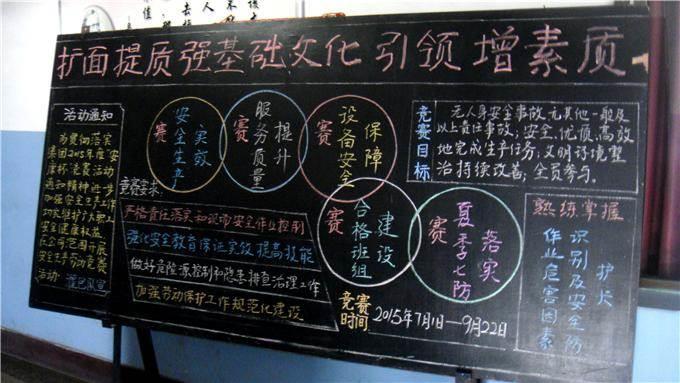 扩面提质强基础文化引领增素质
活动通知
为贯彻落实
集团2015年度"安
康杯"竞赛活动
通知精神,进一步
加强安全卫生工作
安全健康权益
在公司范围开展
安全劳动竞赛
活动。
赛
安全生产
实效
赛
服务质量
提升
赛
设备安全
保障
赛
合格班组
建设
赛
夏季七防
落实
竞赛要求
严格责任落实 知识带安全作业控制
强化安全教育 保证实效 提高技能
做好危险源控制和隐患排查治理工作
加强劳动保护工作规范化建设
竞赛目标
无人身安全事故,尤其他一般及
以上责任事故;安全、优质、高效
地完成生产任务;文明环境整
治持续改善;全员参与。
熟练掌握
识别及安全防护
作业危害因素
竞赛时间
2015年7月1日—9月22日